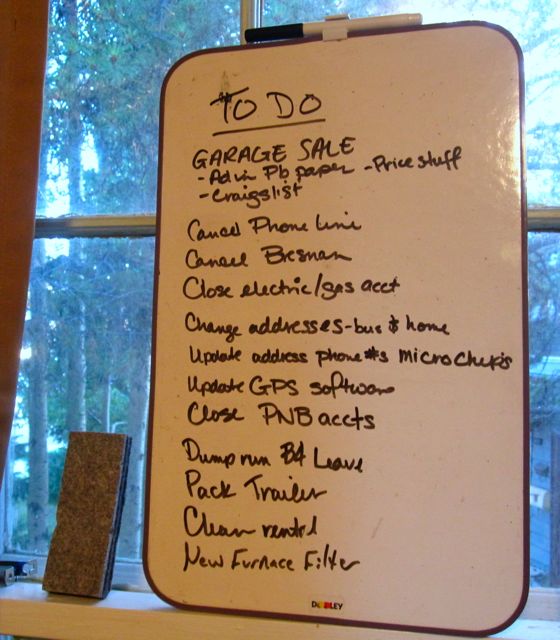 TO DO
GARAGE SALE
- Ad in Pb paper - Price stuff
- Craigslist
Cancel Phone line
Cancel Bresnan
Close electric/gas acct
Change addresses - bus & home
Update address phone #s Microchips
Update GPS software
Close PNB accts
Dump run B4 Leave
Pack Trailer
Clean rental
New Furnace Filter